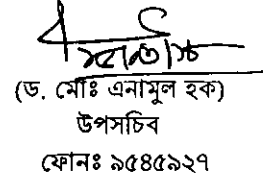 (ড. মোঃ এনামুল হক)
উপসচিব
ফোনঃ ৯৫৪৫৯২৭